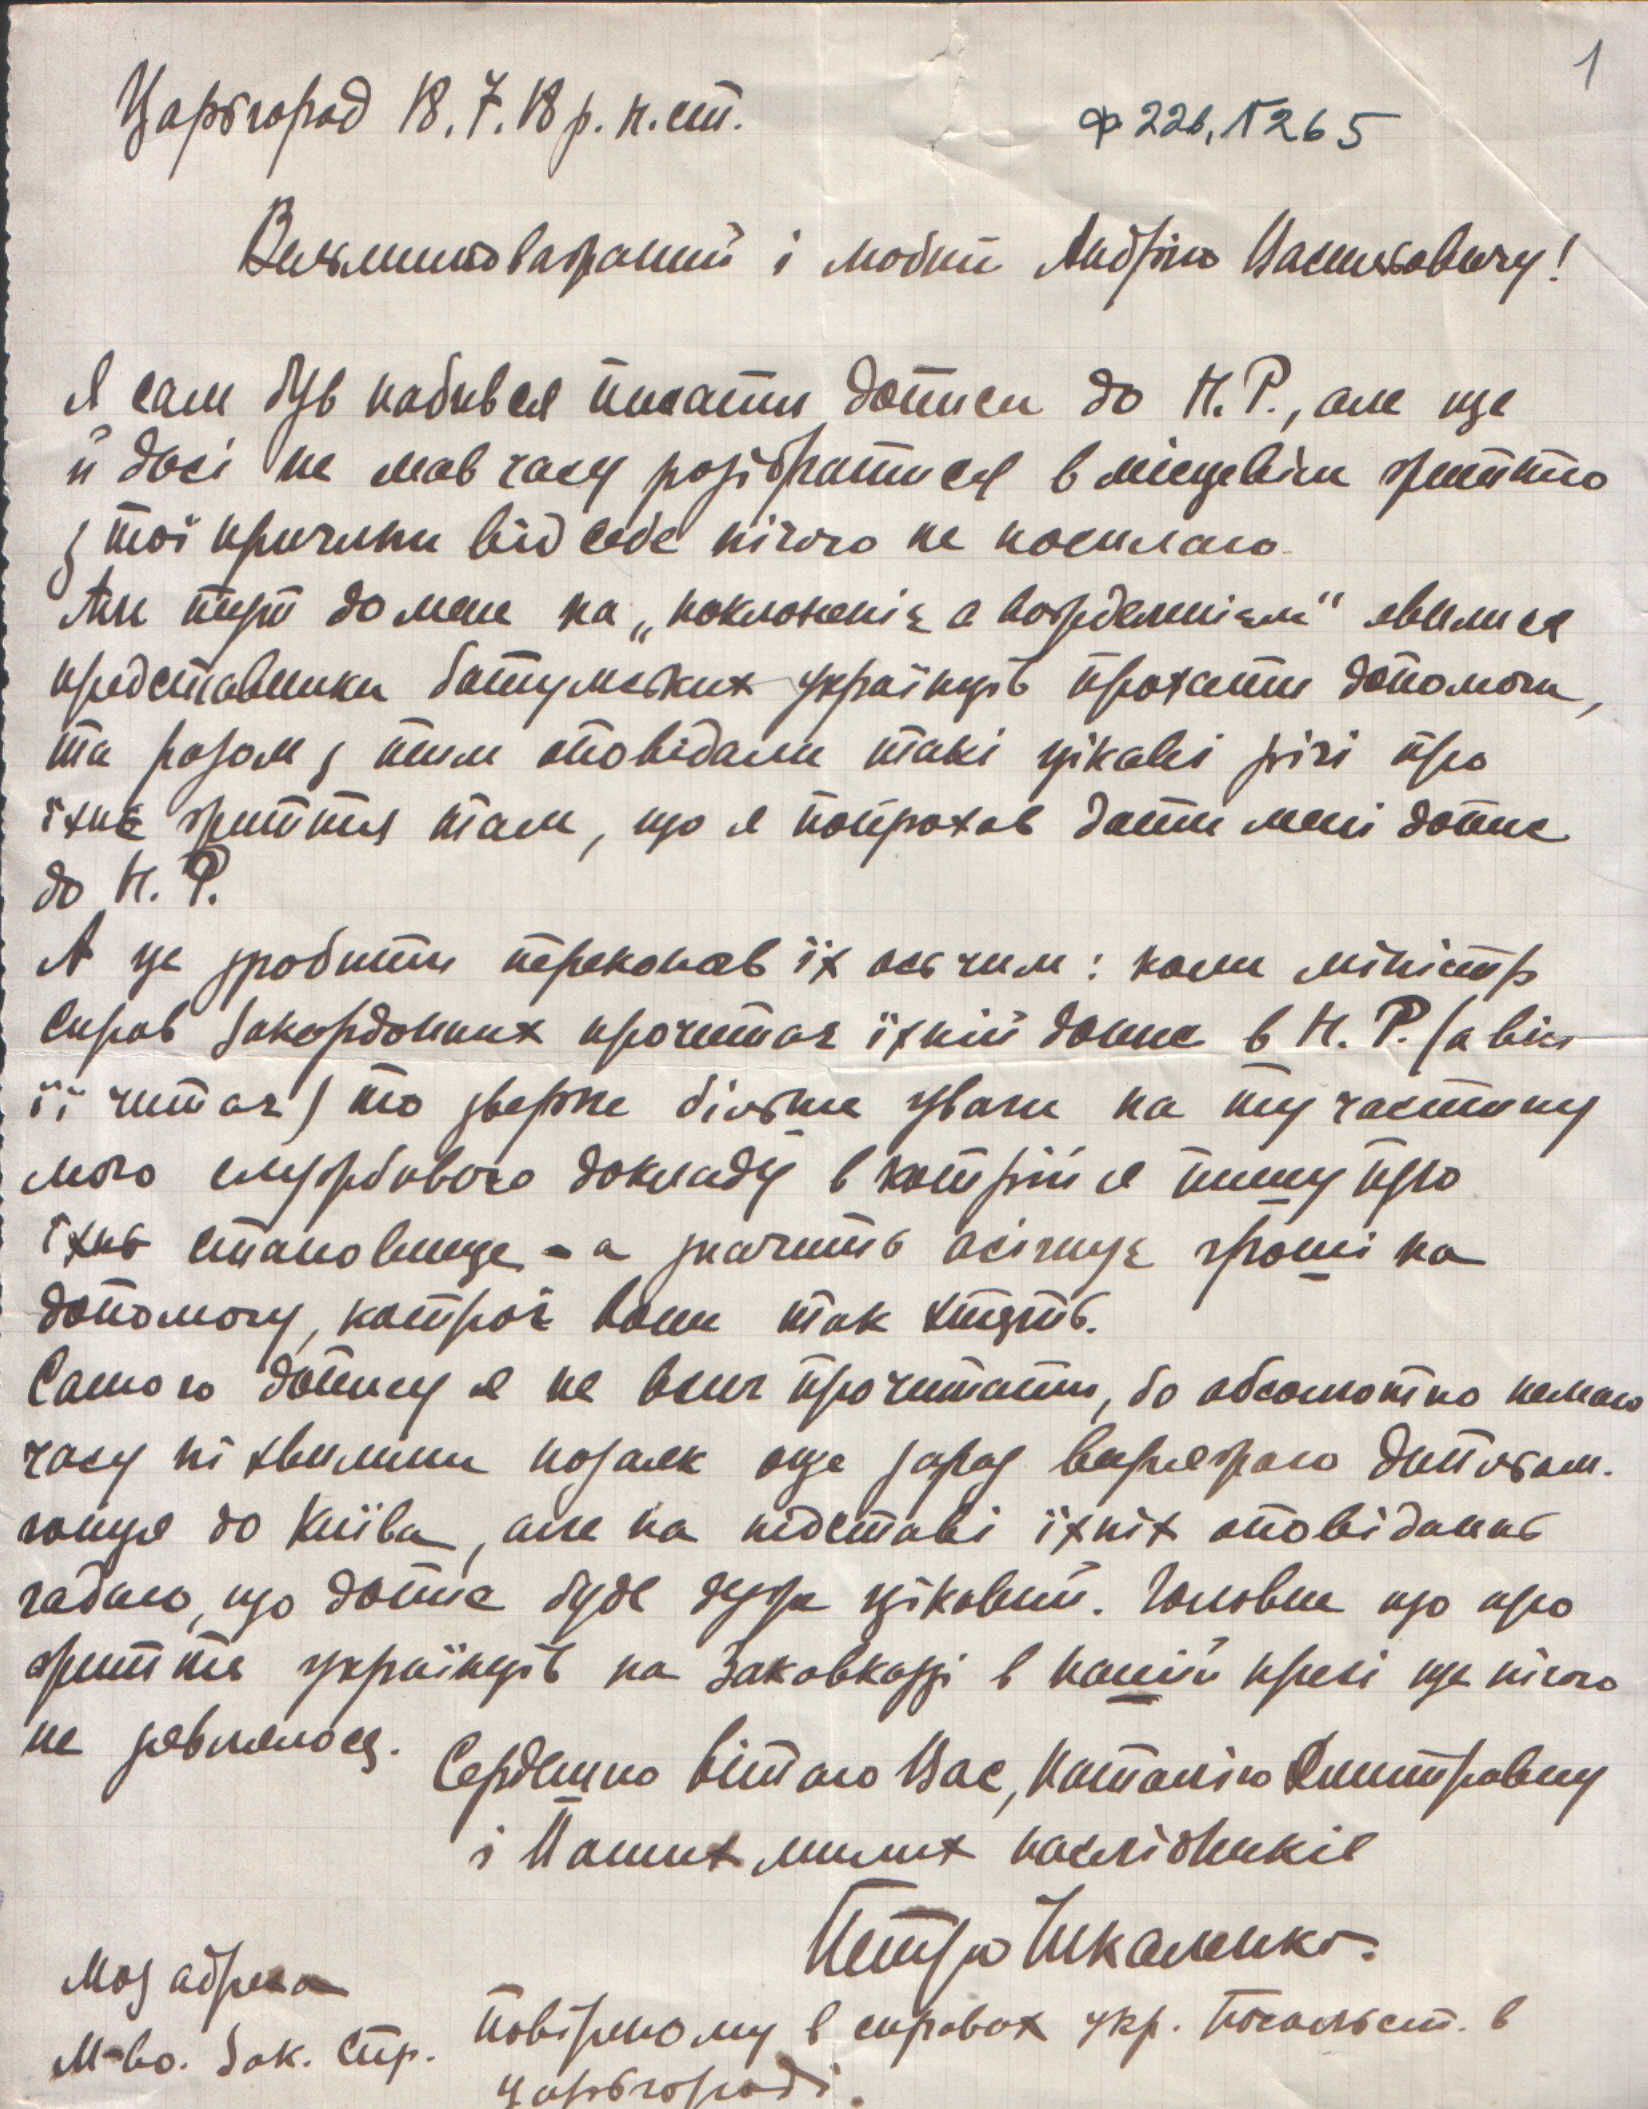 1
Царьгород 18.7.18 р. н. ст.
Ф 226, № 265
Вельмишоважаний і любий Андрію Васильовичу!
Я сам був набився писати дописи до Н. Р., але ще
й досі не мав часу розібратися в місцевім життю
з тої причини від себе нічого не посилаю.
Але тут до мене на „поклоненіє а поздравленієм" явилися
представники батумських українців прохати допомоги,
та разом з тим оповідали такі цікаві річі про
їхнє життя там, що я попрохав дати мені допис
до Н. Р.
А це зробити переконав їх ось чим: коли міністр
справ закордонних прочитає їхній допис в Н. Р. (а він
її читає) то зверне більше уваги на ту частину
мого службового докладу в котрій я пишу про
їхнє становище - а значить асігнує гроші на
допомогу, котрої вони так хтять.
Самого допису я не встиг прочитати, бо абсолютно немаю
часу ні хвилини позаяк оце зараз виряжаю дипльом.
гонця до Київа, але на підставі їхніх оповідань
гадаю, що допис буде дуже цікавий. Головне що про
життя українців на Закавказзі в нашій пресі ще нічого
не зявлялося.
Сердечно вітаю Вас, Наталію Дмитровну
і Ваших милих наслідників
Петро Чикаленко.
Моя адреса
М-во. Зак. Спр.
Повіреному в справах укр. Посольст. в
Царьгороді.